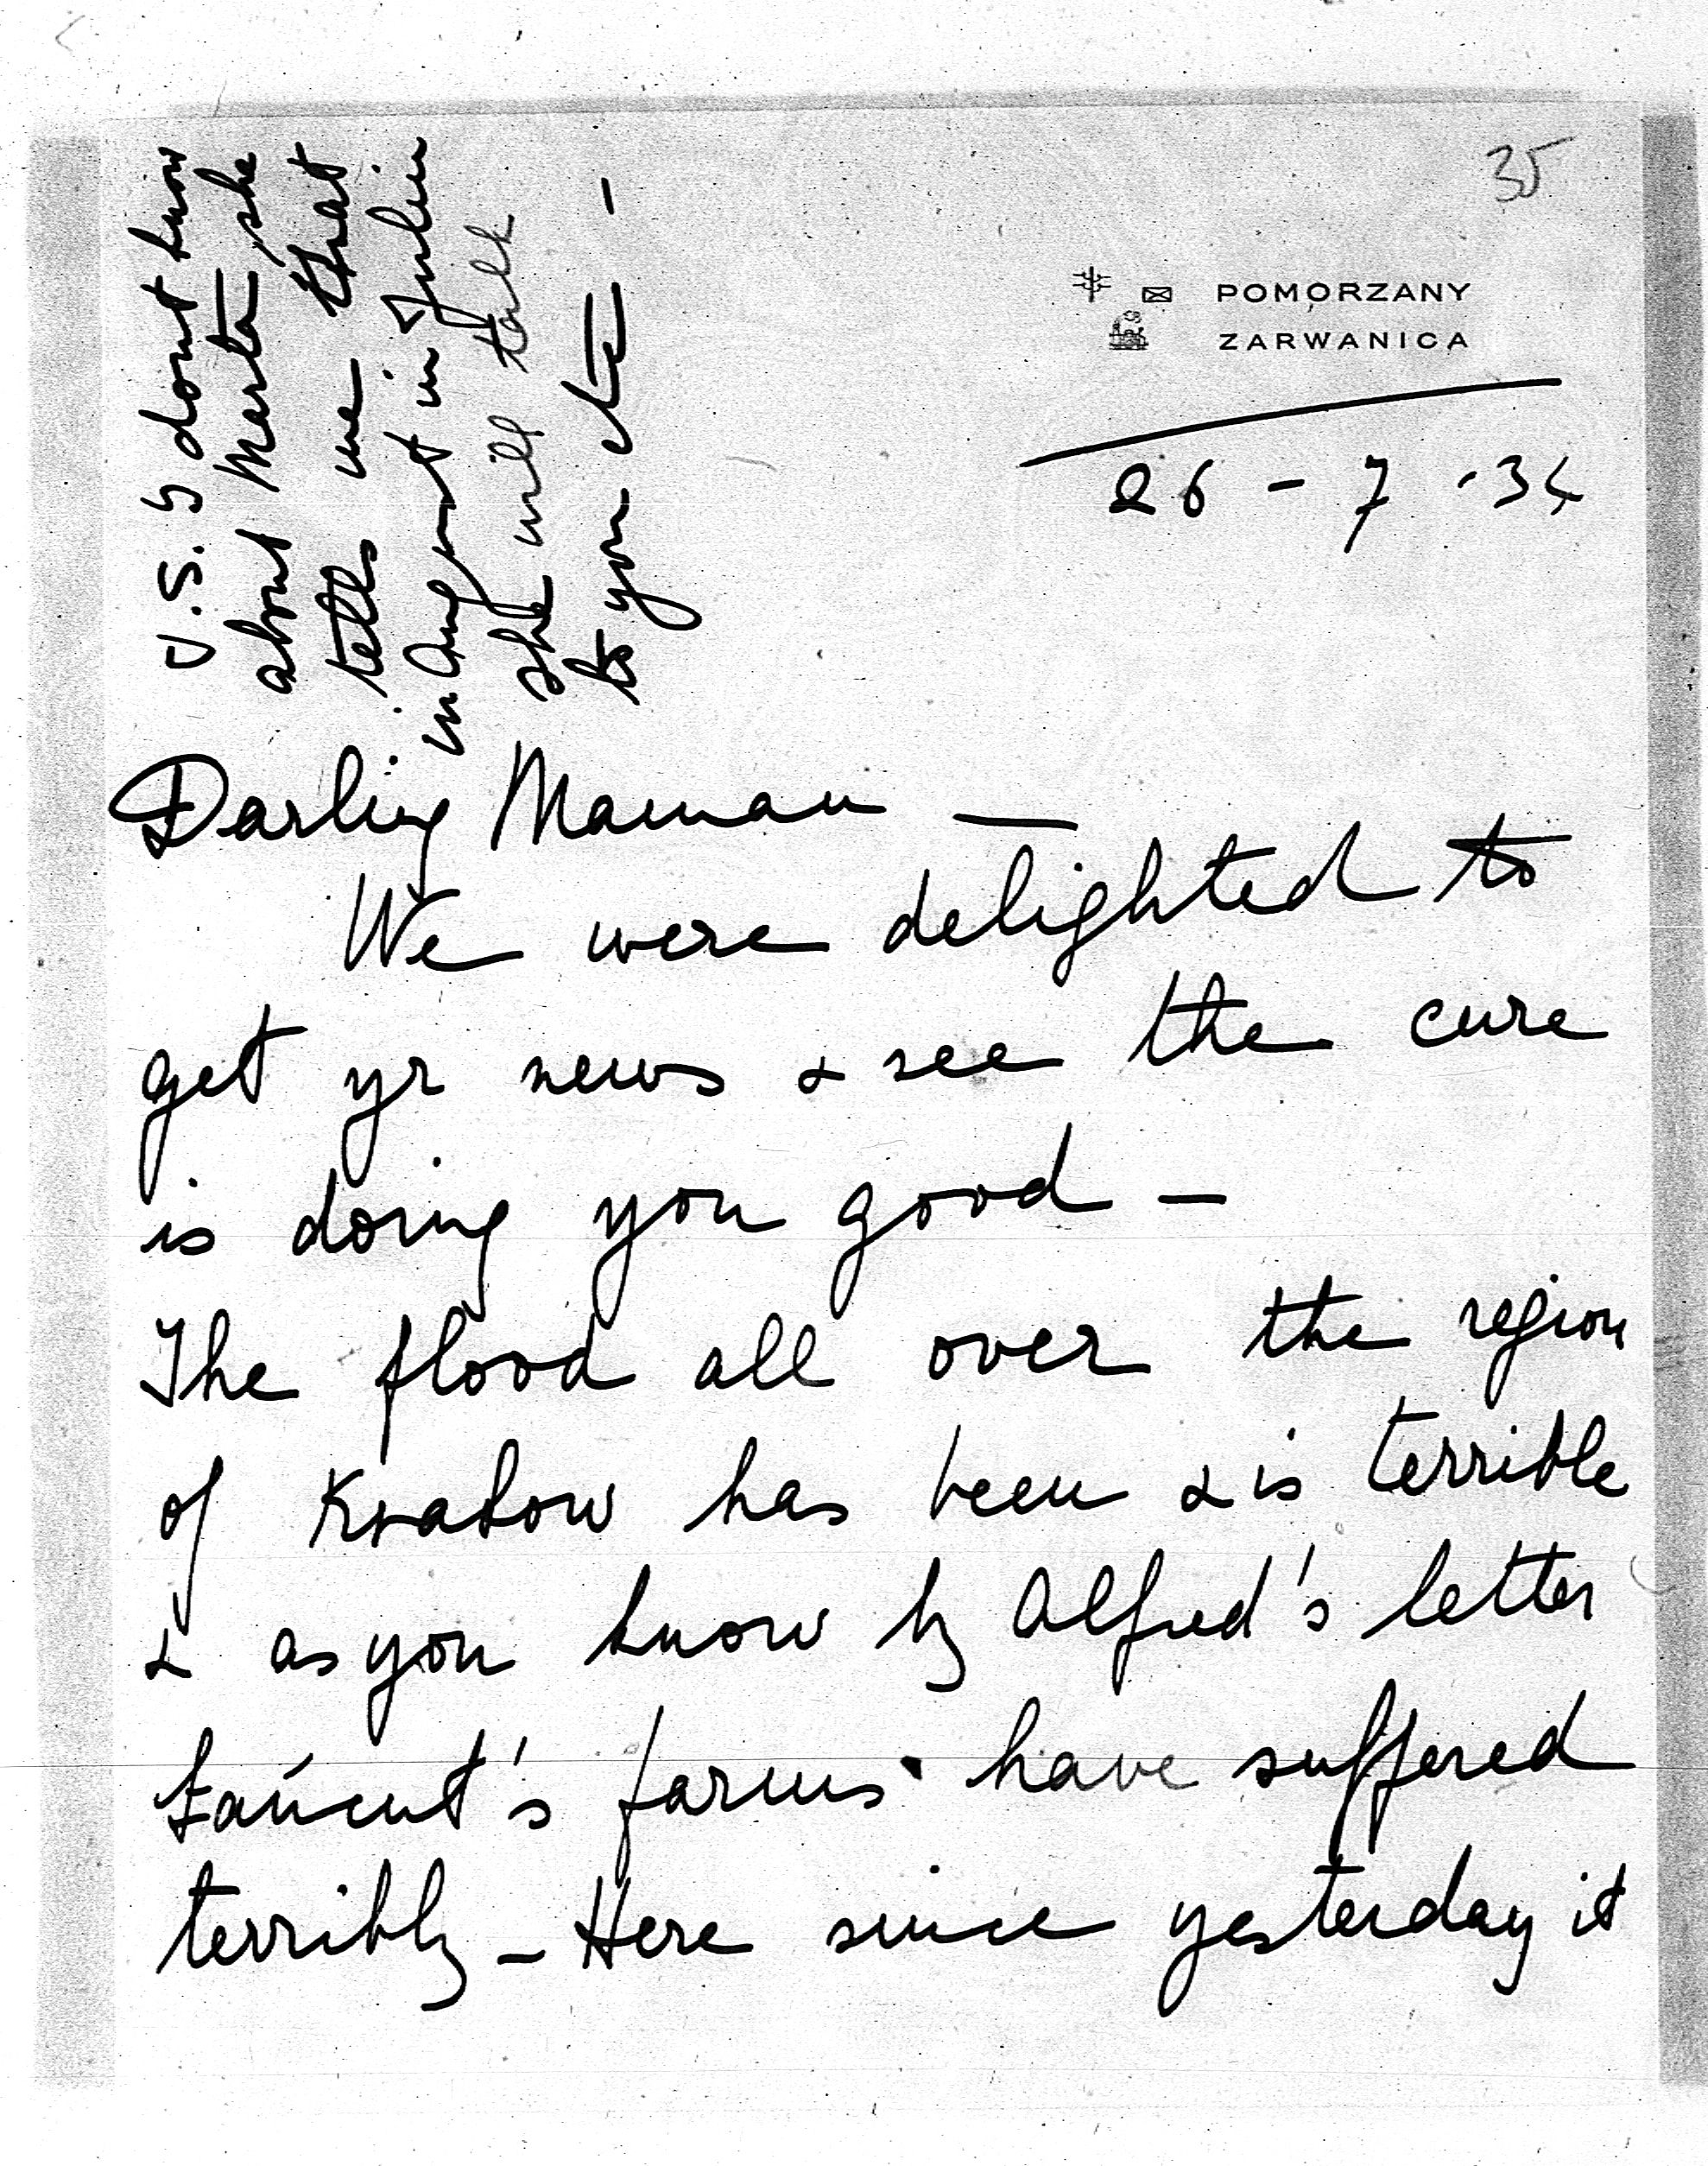 35
POMORZANY
ZARWANICA
26 - 7 - 34
Darling Maman —
We were delighted to
get yr news & see the cure
is doing you good —
The flood all over the region
of Krakow has been & is terrible
& as you know by Alfred's letter
Łańcut's farms have suffered
terribly — Here since yesterday it
I dont know
about Marta, she
tells me that
in August in Julin
she will talk
to you